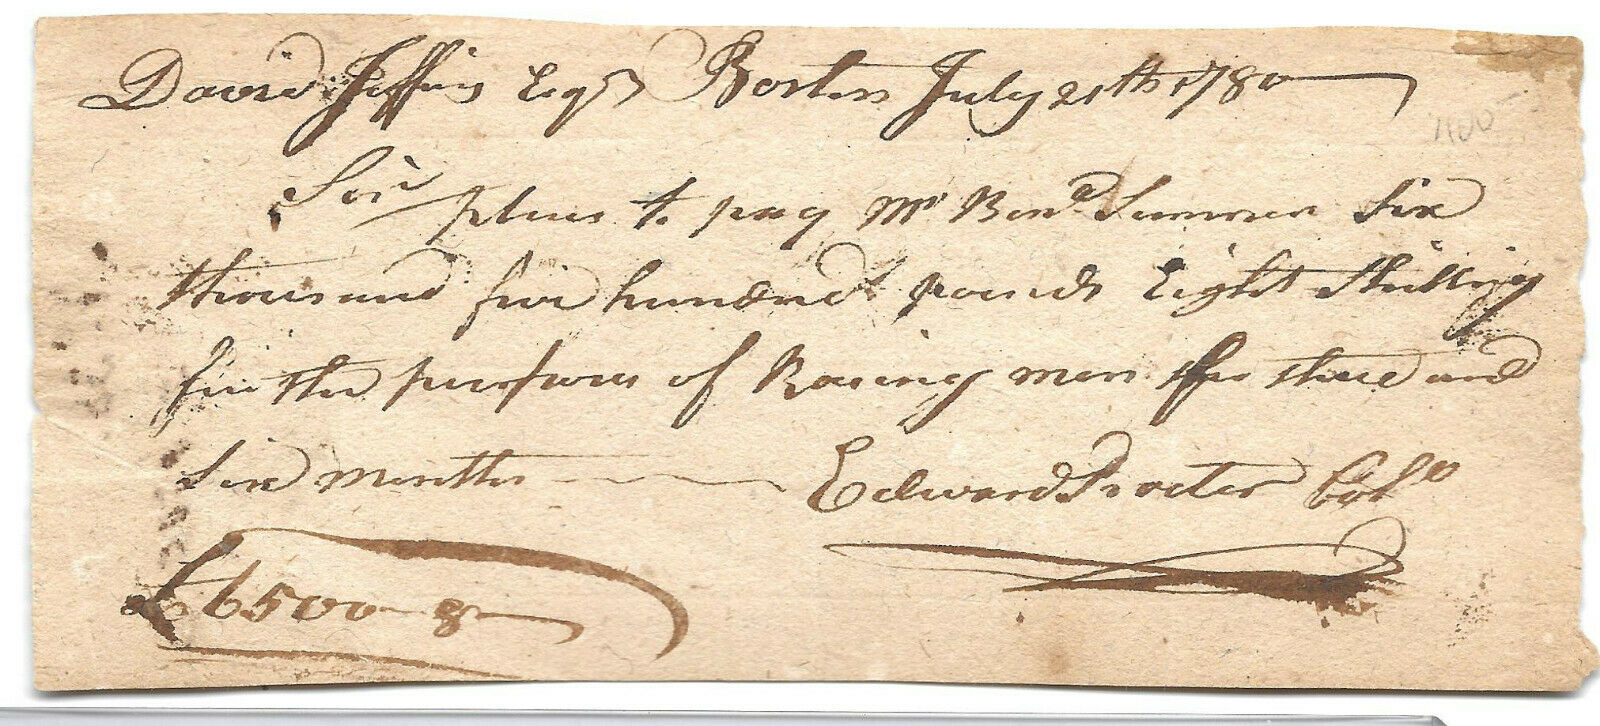 David Jeffris Esqr Boston July 21th 1780
Sir pleas to pay Mr Benj Sumner Six
thousand five hundred pounds Eight Shillings
for the purpose of Raising men for three and
Six months Edward Procter Colo
£6500-8-